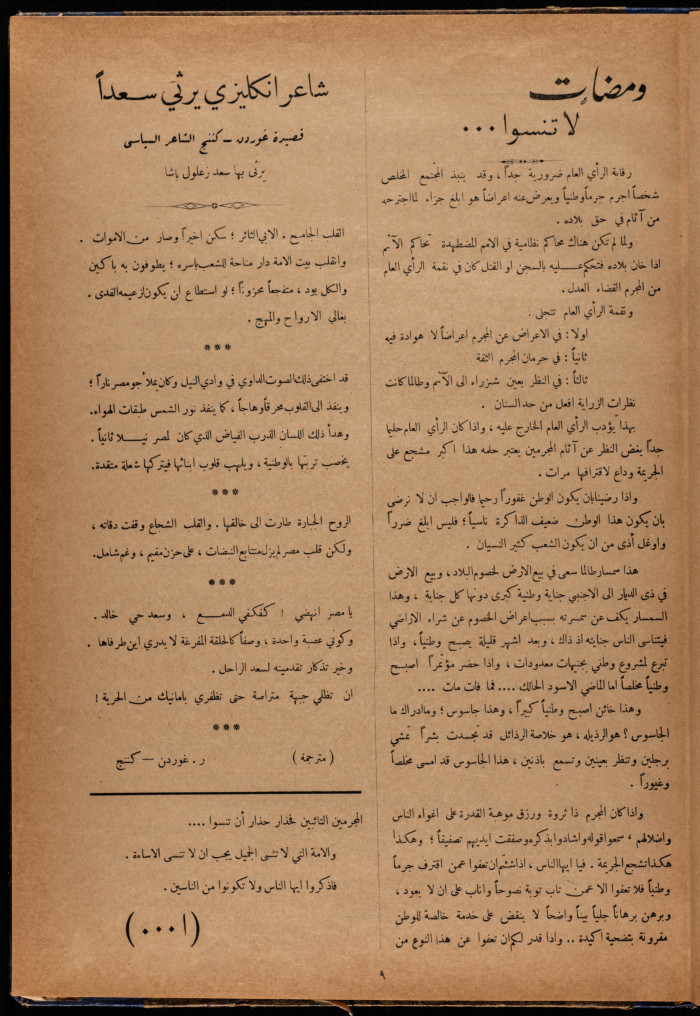 ومضات
لا تنسوا ...
رقابة الرأي العام ضرورية جداً ، وقد ينبذ المجتمع المخلص
شخصاً اجرم جرماً وطنياً ويعرض عنه اعراضاً هو ابلغ جزاء لما اجترحه
من آثام في حق بلاده .
ولما لم تكن هناك محاكم نظامية في الامم المضطهدة تحاكم الآثم
اذا خان بلاده فتحكم عليه بالسجن او القتل كان في نقمة الرأي العام
من المجرم القضاء العدل .
ونقمة الرأي العام تتجلى :
اولا : في الاعراض عن المجرم اعراضاً لا هوادة فيه
ثانياً : في حرمان المجرم الثقة
ثالثاً : في النظر بعين شزراء الى الآثم وطالما كانت
نظرات الزراية افعل من حد السنان .
بهذا يؤدب الرأي العام الخارج عليه ، واذا كان الرأي العام حليما
جداً يغض النظر عن آثام المجرمين يعتبر حلمه هذا اكبر مشجع على
الجريمة وداع لاقترافها مرات .
واذا رضينا بان يكون الوطن غفوراً رحيما فالواجب ان لا نرضى
بان يكون هذا الوطن ضعيف الذاكرة ناسياً ؛ فليس ابلغ ضرراً
واوغل أذى من ان يكون الشعب كثير النسيان .
هذا سمسار طالما سعى في بيع الارض لخصوم البلاد ، وبيع الارض
في ذى الديار الى الاجنبي جناية وطنية كبرى دونها كل جناية ، وهذا
السمسار يكف عن سمسرته بسبب اعراض الخصوم عن شراء الاراضي
فيتناسى الناس جنايته اذ ذاك ، وبعد اشهر قليلة يصبح وطنياً ، واذا
تبرع لمشروع وطني بجنيهات معدودات ، واذا حضر مؤتمراً اصبح
وطنياً مخلصاً اما الماضي الاسود الحالك .... فما فات مات ....
وهذا خائن اصبح وطنياً كبيراً ، وهذا جاسوس ؛ وما ادراك ما
الجاسوس ؟ هو الرذيله ، هو خلاصة الرذائل قد تجسدت بشراً تمشي
برجلين وتنظر بعينين وتسمع باذنين ، هذا الجاسوس قد امسى مخلصاً
وغيوراً .
واذا كان المجرم ذا ثروة ورزق موهبة القدرة على اغواء الناس
واضلالهم ، سمعوا قوله واشادوا بذكره وصفقت ايديهم تصفيقاً ؛ وهكذا
هكذا تشجع الجريمة . فيا ايها الناس ، اذا شئتم ان تعفوا عمن اقترف جرماً
وطنياً فلا تعفوا الا عمن تاب توبة نصوحاً واناب على ان لا يعود ،
وبرهن برهاناً جلياً بيناً واضحاً لا ينقض على خدمة خالصة للوطن
مقرونة بتضحية اكيدة .. واذا قدر لكم ان تعفوا عن هذا النوع من
شاعر انكليزي يرثي سعداً
قصيدة غوردن – كننج الشاعر السياسى
يرثى بها سعد زغلول باشا
القلب الجامع ، الابي الثائر ؛ سكن اخيراً وصار من الاموات .
وانقلب بيت الامة دار مناحة للشعب باسره ؛ يطوفون به باكين
والكل يود ، متفجعاً محزوناً ؛ لو استطاع ان يكون لزعيمه الفدى .
بغالي الارواح والمهج .
***
قد اختفى ذلك الصوت الداوي في وادي النيل وكان يملأ جو مصر ناراً ؛
وينفذ الى القلوب محرقاً وهاجاً ، كما ينفذ نور الشمس طبقات الهواء .
وهدأ ذلك اللسان الذرب الفياض الذي كان لمصر نيلا ثانياً .
يخصب تربتها بالوطنية ، ويلهب قلوب ابنائها فيتركها شعلة متقدة .
***
الروح الجبارة طارت الى خالقها . والقلب الشجاع وقفت دقاته ،
ولكن قلب مصر لم يزل متتابع النبضات ، على حزن مقيم ، وغم شامل .
***
يا مصر انهضي ! كفكفي الدمع ، وسعد حي خالد .
وكوني عصبة واحدة ، وصفاً كالحلقة المفرغة لا يدرى اين طرفاها .
وخير تذكار تقدمينه لسعد الراحل .
ان تظلي جبهة متراصة حتى تظفري بامانيك من الحرية !
***
( مترجمة ) ر . غوردن – كننج
المجرمين التائبين فحذار حذار أن تنسوا ....
والامة التي لا تنسى الجميل يجب ان لا تنسى الاساءة .
فاذكروا ايها الناس ولا تكونوا من الناسين .
( ا ... )
٩